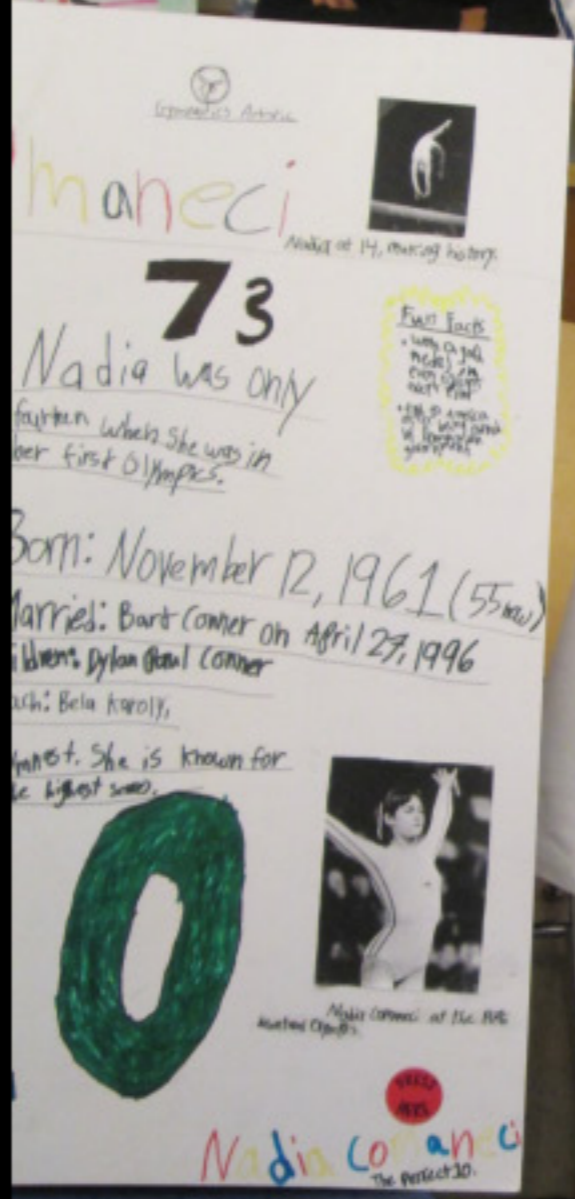 Gymnastics Artistic
maneci
Nadia at 14, making history.
73
Nadia was only
fourteen when she was in
her first Olympics.
Fun Facts
Born: November 12, 1961 (55 now)
Married: Bart Conner on April 27, 1996
ildren: Dylan Paul Conner
ach: Bela Karolyi
mnast. She is known for
highest
0
Nadia Comaneci at the
Montreal Olympics.
PRESS
HERE
Nadia Comaneci
The perfect 10.